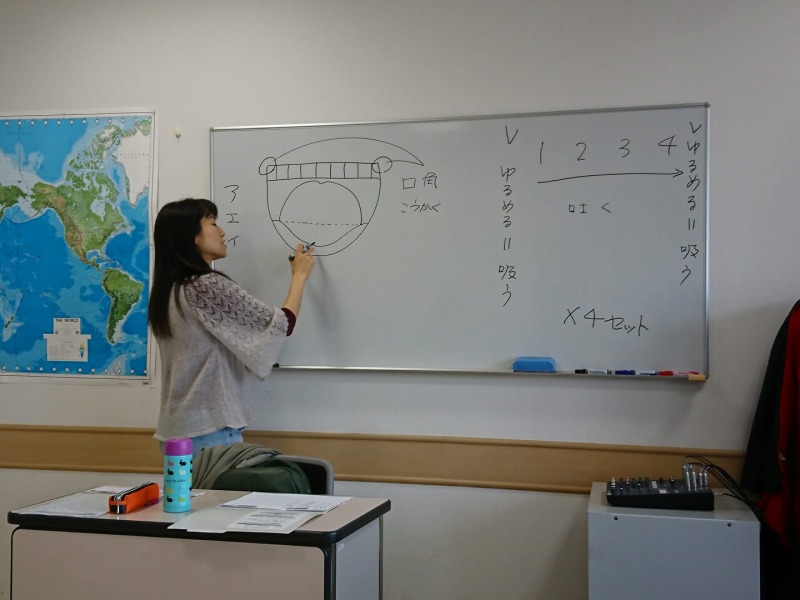 THE WORLD
ア
エ
イ
口角
こうかく
V ゆるめる=吸う
1 2 3 4
吐く
V ゆるめる=吸う
×4セット